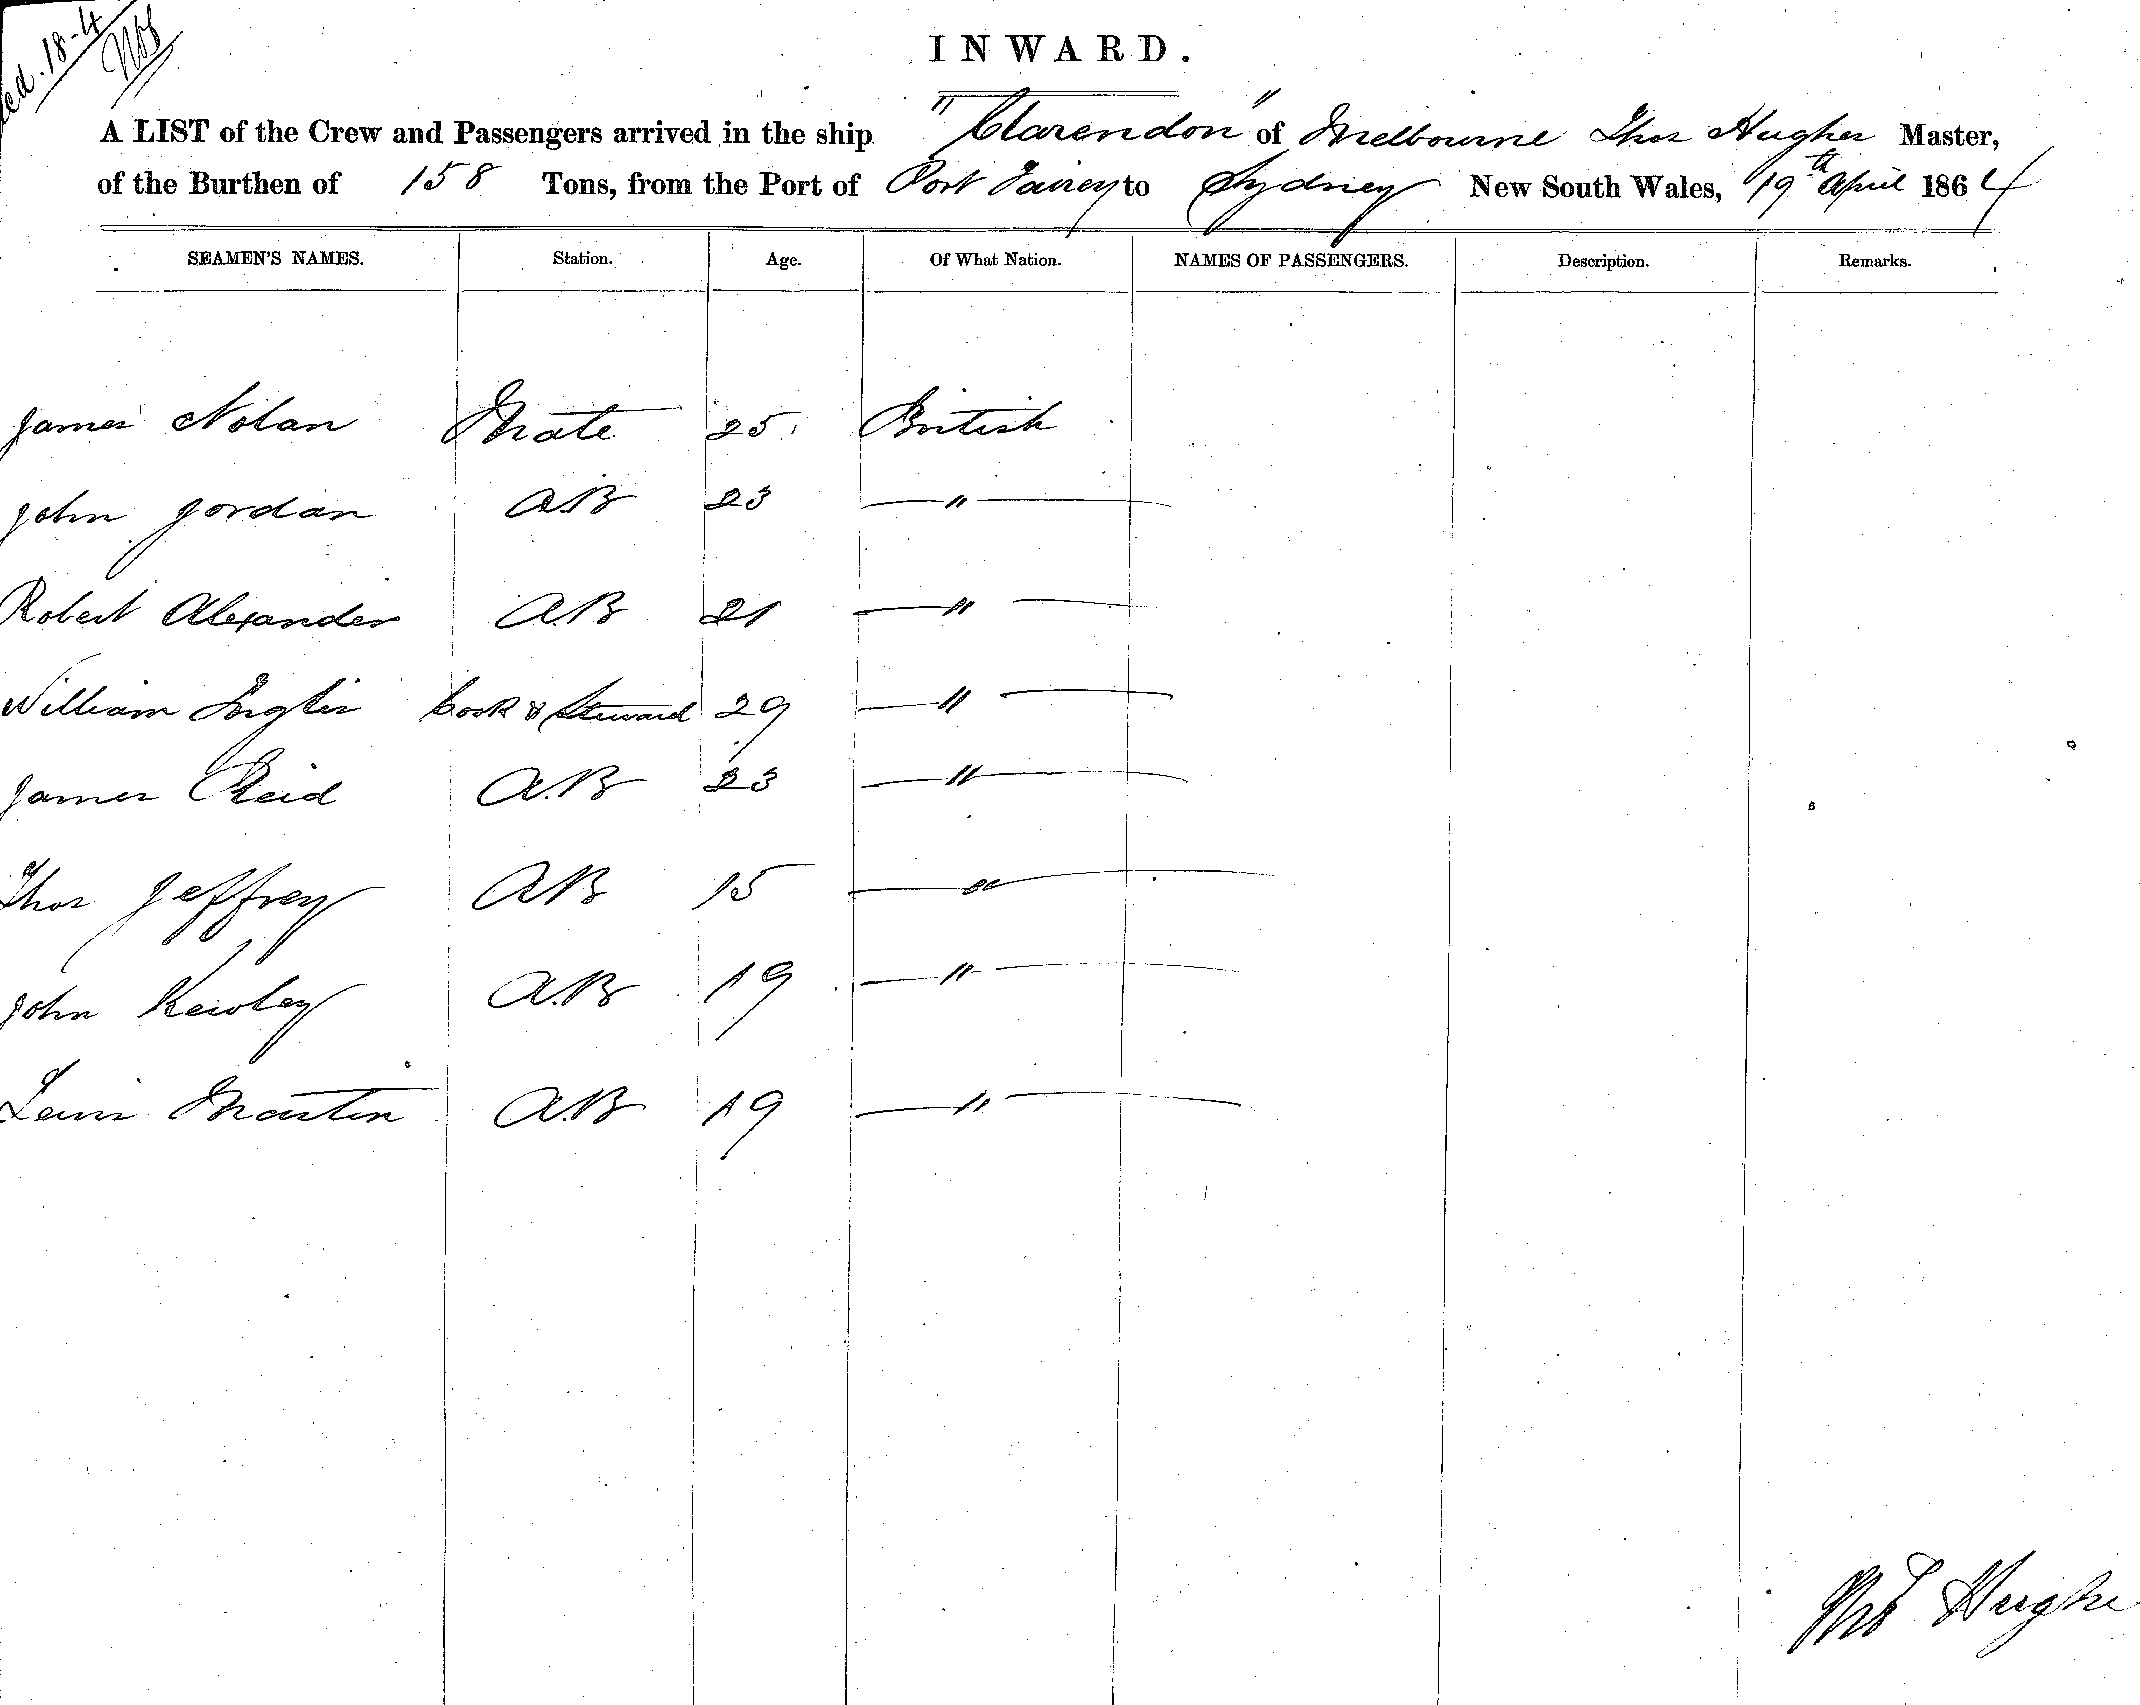 18-4
INWARD.
A LIST of the Crew and Passengers arrived in the ship "Clarendon" of Melbourne Thos Hughes Master,
of the Burthen of 158 Tons, from the Port of Port Fairey to Sydney New South Wales, 19th April 1864
SEAMEN'S NAMES. Station. Age. Of What Nation. NAMES OF PASSENGERS. Description. Remarks.
James Nolan Mate 25 British
John Jordan A.B 23 — " —
Robert Alexander A.B 21 — " —
William Inglis Cook & Steward 29 — " —
James Reid A.B 23 — " —
Thos Jeffrey AB 15 — " —
John Kewley A.B 19 — " —
Lewis Martin A.B 19 — " —
Thos Hughes